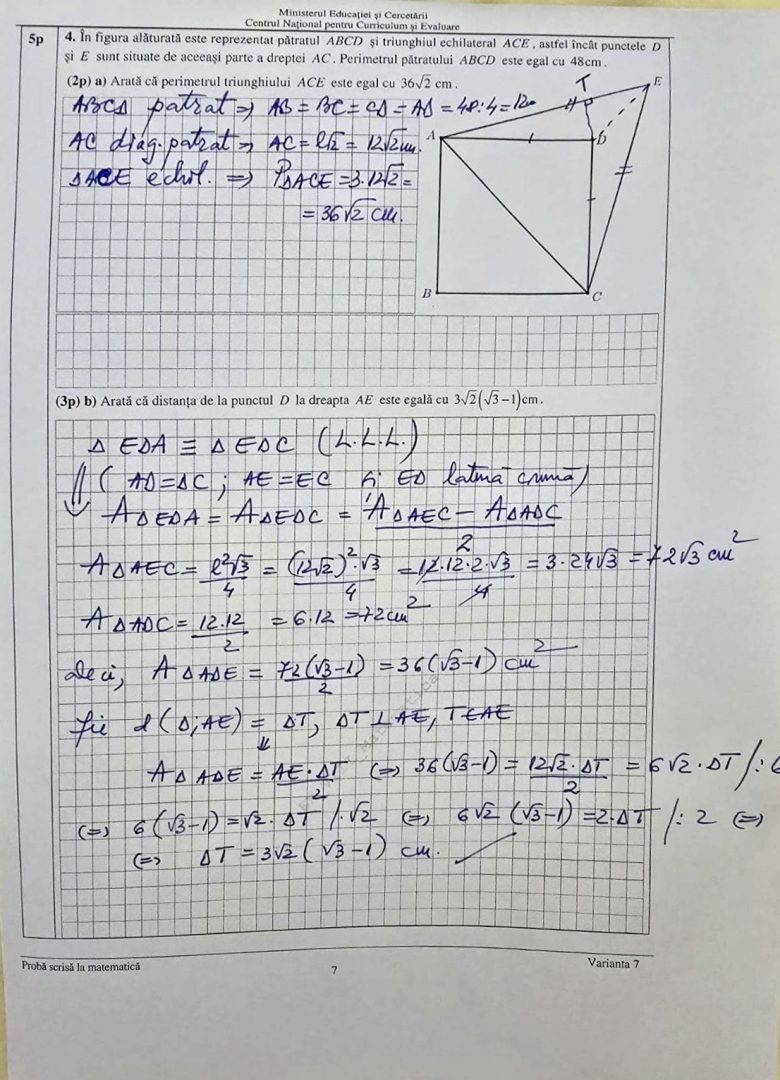 Ministerul Educației și Cercetării
Centrul Național pentru Curriculum și Evaluare
5p
4. În figura alăturată este reprezentat pătratul ABCD și triunghiul echilateral ACE, astfel încât punctele D
și E sunt situate de aceeași parte a dreptei AC. Perimetrul pătratului ABCD este egal cu 48cm.
(2p) a) Arată că perimetrul triunghiului ACE este egal cu 36√2 cm.
ABCD patrat ⇒ AB = BC = CD = AD = 48:4 = 12
AC diag. patrat ⇒ AC = l√2 = 12√2 cm.
ΔACE echil. ⇒ PΔACE = 3·12√2 =
= 36√2 cm.
T
E
A
D
B
C
(3p) b) Arată că distanța de la punctul D la dreapta AE este egală cu 3√2(√3−1)cm.
Δ EDA ≡ Δ EDC (L.L.L.)
⇓ (AD=DC; AE=EC și ED latură comună)
AΔEDA = AΔEDC = (AΔAEC − AΔADC)/2
AΔAEC = l²√3/4 = (12√2)²·√3/4 = 12·12·2·√3/4 = 3·24√3 = 72√3 cm²
AΔADC = 12·12/2 = 6·12 = 72 cm²
Deci, AΔADE = 72(√3−1)/2 = 36(√3−1) cm²
Fie d(D;AE) = DT, DT⊥AE, T∈AE
⇓
AΔADE = AE·DT/2 ⇔ 36(√3−1) = 12√2·DT/2 = 6√2·DT /:6
⇔ 6(√3−1) = √2·DT /·√2 ⇔ 6√2(√3−1) = 2·DT /:2 ⇔
⇔ DT = 3√2(√3−1) cm.
Probă scrisă la matematică
7
Varianta 7